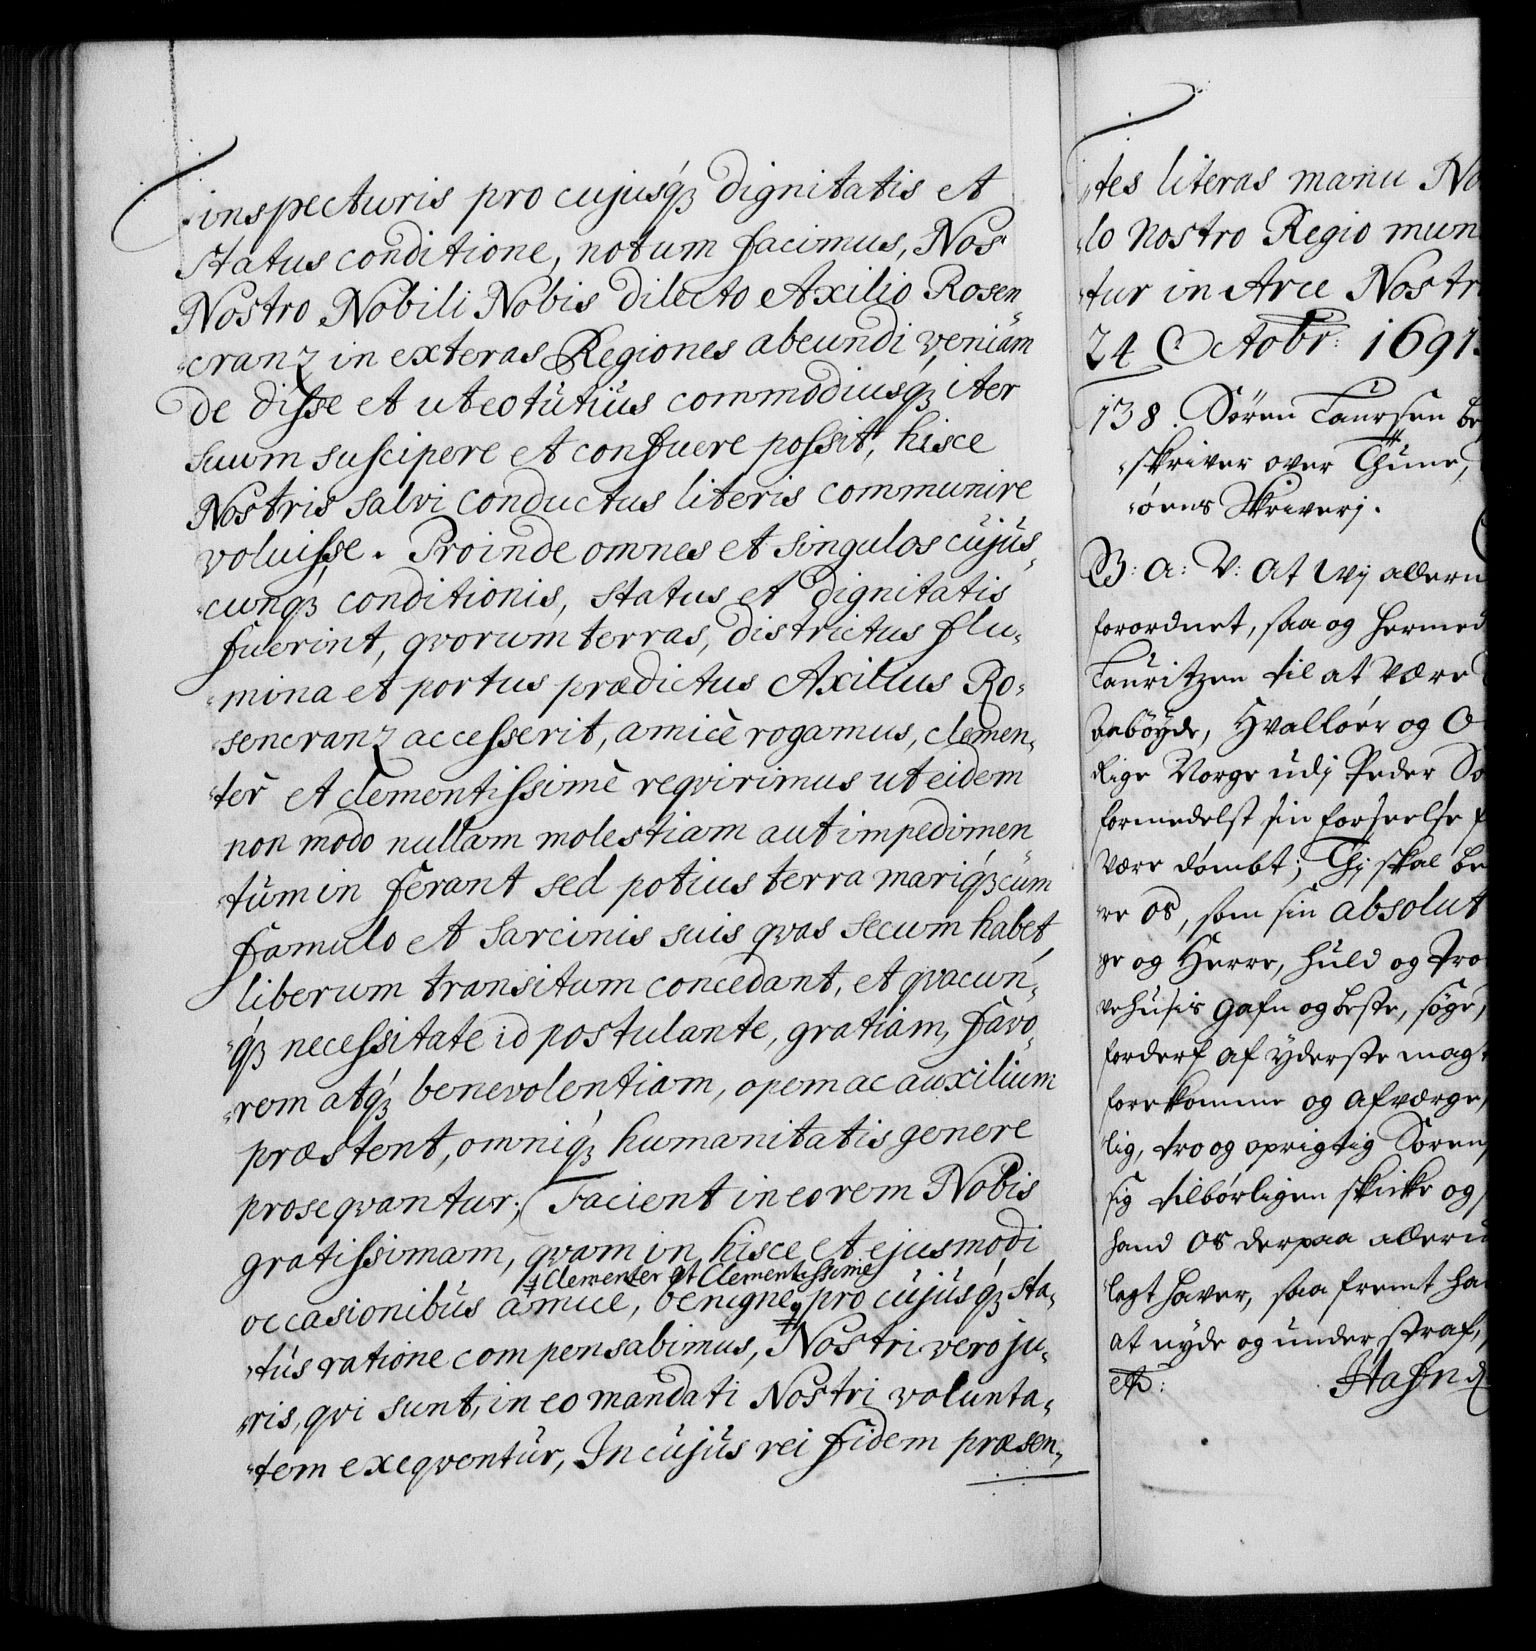 inspecturis pro cujusq3 dignitatis et
status conditione, notum facimus, Nos
Nostro Nobili Nobis dilecto Axilio Rosen
cranz in exteras Regiones abeundi veniam
dedisse et ut eo tutius commodiusq3 iter
suum suscipere et confuere possit, hisce
Nostris salvi conductus literis communire
voluisse. Proinde omnes et singulos cujus
cunq3 conditionis, status et dignitatis
fuerint, qvorum terras, districtus flu
mina et portus prædictus Axilius Ro
sencranz accesserit, amicè rogamus, clemen
tèr et clementissimè reqvirimus ut eidem
non modo nullam molestiam aut impedimen
tum in ferant sed potius terra mariq3 cum
famulo et sarcinis suis qvas secum habet
liberum transitum concedant, et qvacun
q3 necessitate id postulante, gratiam, favo
rem atq3 benevolentiam, opem ac auxilium
præstent, omniq3 humanitatis genere
proseqvantur; Facient in eo rem Nobis
gratissimam, qvam in hisce et ejusmodi
Clementer et Clementissime
occasionibus amice, benigne, pro cujusq3 sta
tus ratione compensabimus, Nostri vero ju
ris, qvi sunt, in eo mandati Nostri volunta
tem exeqventur, In cujus rei fidem præsen
tes literas manu No
lo Nostro Regio mun
tur in Arce Nostr
24 Octobr: 1691.
138. Sören Laursen be
skriver over Thune,
öens Skriverj.
G: A: V: At Wij allern
forordnet, saa og hermed
Lauritzen til at være
Aaböyde, Hvallöer og O
rlige Norge udj Peder Sö
formedelst sin forseelse f
være dömbt; Thj skal be
re os, som sin absolut
ge og Herre, huld og tro
rehusis gafn og beste, söge,
forderf af yderste magt
forekomme og afværge,
lig, tro og oprigtig Sören
sig tilbörligen skicke og
hand os derpaa alleru
lagt haver, saa fremt ha
at nyde og under straf,
etc: Hafn d